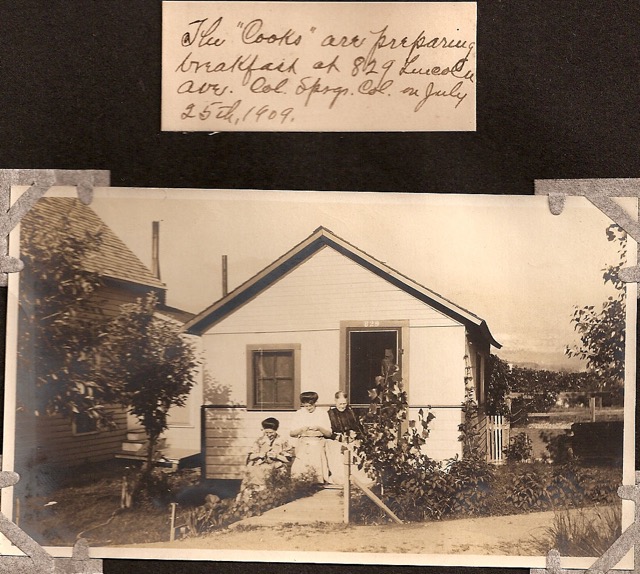 The "Cooks" are preparing
breakfast at 829 Lincoln
ave. Col. Sprgs. Col. on July
25th, 1909.
829